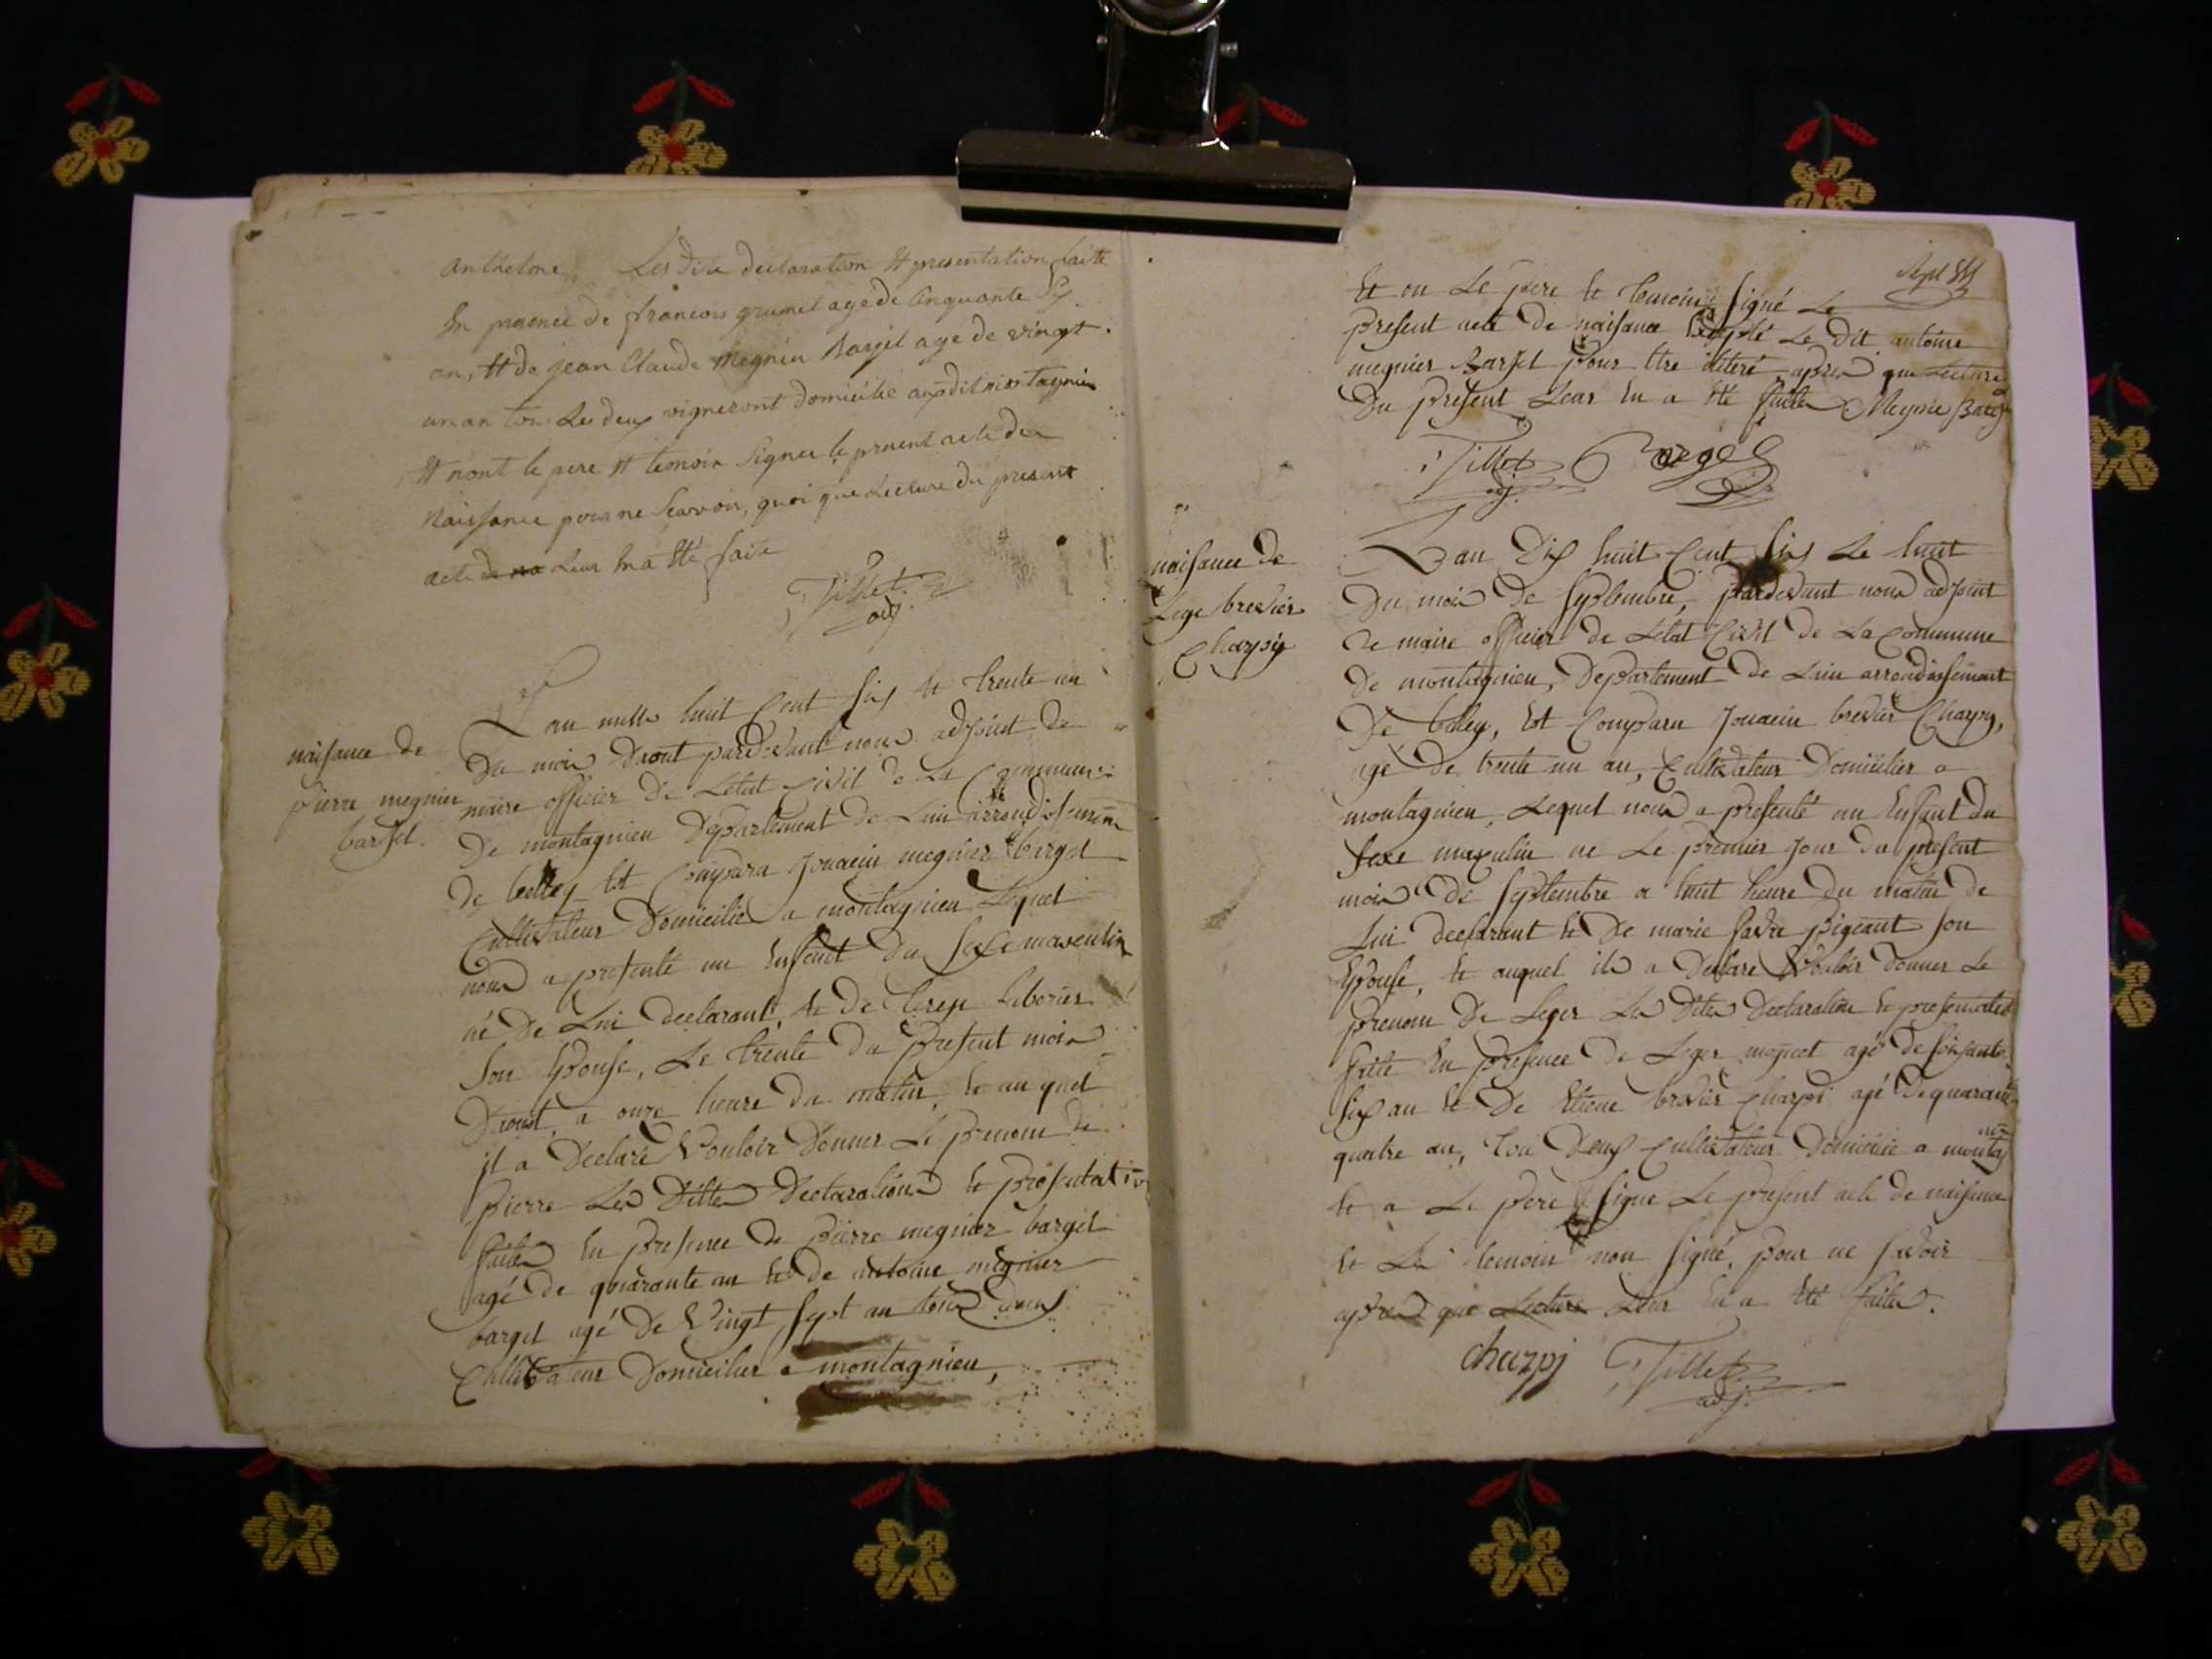 anthelme, Les dite déclaration et presentation faite
En presence de francois grumet age de cinquante six
an, et de jean Claude megnier Bargel age de vingt
un an tous Les deux vigneront domicilie audit montagnieu
et nont le pere et temoin Signer le present acte de
Naissance pour ne Scavoir, quoi que Lecture du present
acte de na Leur En a été faite
Tillet
adj
naisance de
pierre megnier
barjet.
Lan mille huit Cent six le trente un
Du mois Daout pardevant nous adjoint de
maire officier De Letat civil de La Commune
De montagnieu Département de Lain arrondissement
de belley Est Comparu Jouacin megnier barget
Cultivateur Domicilié a montagnieu Lequel
nous a presenté un Enfant du sexe masculin
né De Lui declarant, et De
Son Epouse, Le trente du present mois
Daoust, a onze heure du matin, et au quel
il a Declaré Vouloir Donner Le prenom de
pierre Les Dittes Declarations et presentation
faites En presence de pierre megnier barget
agé de quarante an et de antoine megnier
barget agé De Vingt sept an tous deux
Cultivateur Domicilier a montagnieu,
Sept
Et on Le pere et temoins signé Le
present acte De naisance Excepté Le Dit antoine
megnier Barjet pour Etre iliteré apres que Lecture
Du present Leur En a été faite Meynie Barge
Tillet Bargel
adj.
naisance de
Lege brevier
Charpy
Lan Dix huit Cent six Le huit
Du mois De septembre, pardevant nous adjoint
de maire officier de Létat Civil De La Commune
De montagnieu, Département De Lain arrondissement
De belley, Est Comparu Jouacin brevier Charpy,
agé De trente un an, Cultivateur Domicilier a
montagnieu, Lequel nous a presenté un Enfant du
sexe masculin né Le premier Jour du present
mois De septembre a huit heure du matin de
Lui declarant et De marie favre pigeaut son
Epouse, et auquel il a Declare Vouloir donner Le
prenom De Leger Les Dites Declaration et presentation
faite En presence De Leger agé de soixante
six an et De Etiene brevier Charpi agé De quarante
quatre an, tou Deux Cultivateur Domicilié a montagnieu
et a Le père signe Le present acte de naisance
et Les temoin non signé, pour ne savoir
apres que Lecture Leur En a été faites.
charpj Tillet
adj.